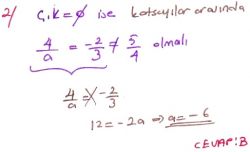 2) Ç.K = ∅ ise katsayılar arasında
4/a = -2/3 ≠ 5/4 olmalı
4/a = -2/3
12 = -2a ⇒ a = -6
CEVAP: B